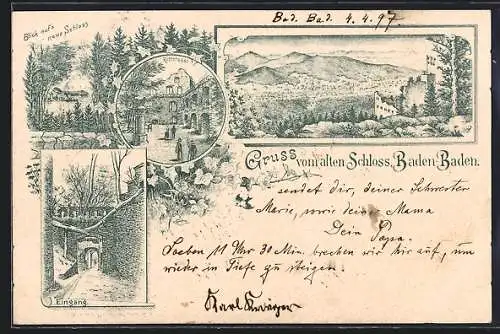 Bad. Bad. 4.4.97.
Blick auf's
neue Schloss
Rittersaal
Gruss vom alten Schloss, Baden-Baden.
sendet dir, deiner Schwester
Marie, sowie deiner Mama
Dein Papa.
Soeben 11 Uhr 30 Min. brechen wir hier auf, um
wieder in Tiefe zu steigen.
Karl
I. Eingang.